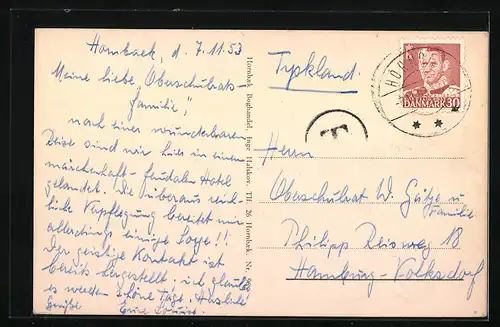 Hornbaek, d. 7.11.53
Meine liebe „Oberschulrats-
familie“,
nach einer wunderbaren
Reise sind wir hier in einem
märchenhaft-feudalen Hotel
gelandet. Die überaus reich-
liche Verpflegung bereitet mir
allerdings einige Sorge!!
Der geistige Kontakt ist
bereits hergestellt, ich glaube
es werden schöne Tage. Herzliche
Grüße Eure Louise.
Hornbæk Boghandel, Inge Halskov, Tlf. 26 Hornbæk Nr.
Tyskland.
DANMARK 30
T
Herrn
Oberschulrat W. Götze u
Familie
Philipp Reisweg 18
Hamburg-Volksdorf